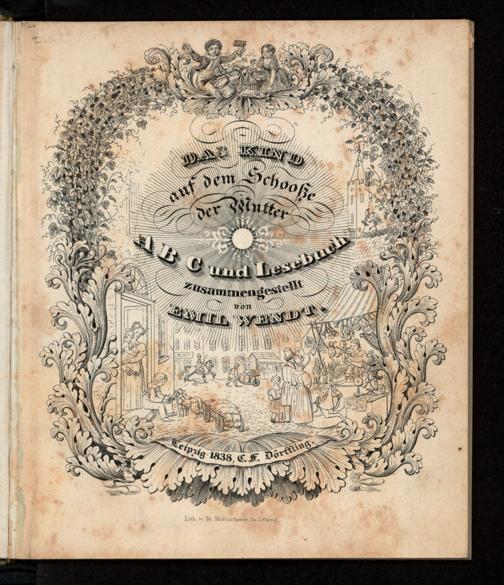 DAS KIND
auf dem Schooße
der Mutter
A B C und Lesebuch
zusammengestellt
von
EMIL WENDT.
Leipzig 1838, C. F. Dörffling.
Lith. v.